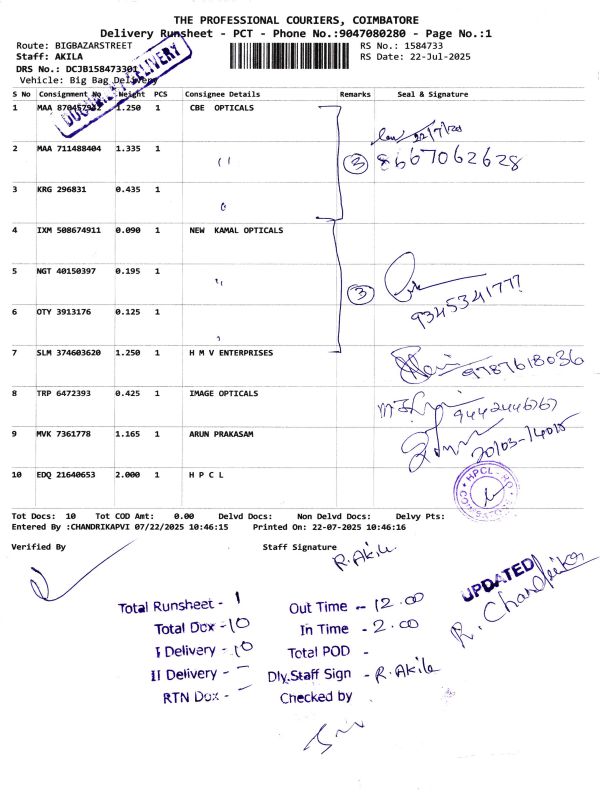 THE PROFESSIONAL COURIERS, COIMBATORE
Delivery Runsheet - PCT - Phone No.:9047080280 - Page No.:1
Route: BIGBAZARSTREET RS No.: 1584733
Staff: AKILA RS Date: 22-Jul-2025
DRS No.: DCJB158473301
Vehicle: Big Bag Delivery
DELIVERY
S No Consignment No Weight PCS Consignee Details Remarks Seal & Signature
1 MAA 1.250 1 CBE OPTICALS
22/7/20
2 MAA 711488404 1.335 1 " ③ 8667062628
3 KRG 296831 0.435 1 "
4 IXM 508674911 0.090 1 NEW KAMAL OPTICALS
5 NGT 40150397 0.195 1 " ③
9345341777
6 OTY 3913176 0.125 1 "
7 SLM 374603620 1.250 1 H M V ENTERPRISES 9787618036
8 TRP 6472393 0.425 1 IMAGE OPTICALS
9 MVK 7361778 1.165 1 ARUN PRAKASAM
10 EDQ 21640653 2.000 1 H P C L HPCL - RO
Tot Docs: 10 Tot COD Amt: 0.00 Delvd Docs: Non Delvd Docs: Delvy Pts:
Entered By :CHANDRIKAPVI 07/22/2025 10:46:15 Printed On: 22-07-2025 10:46:16
Verified By Staff Signature
R. Akila
UPDATED
Total Runsheet - 1 Out Time - 12.00
Total Dox - 10 In Time - 2.00
I Delivery - 10 Total POD -
II Delivery - Dly.Staff Sign - R. Akila
RTN Dox - Checked by